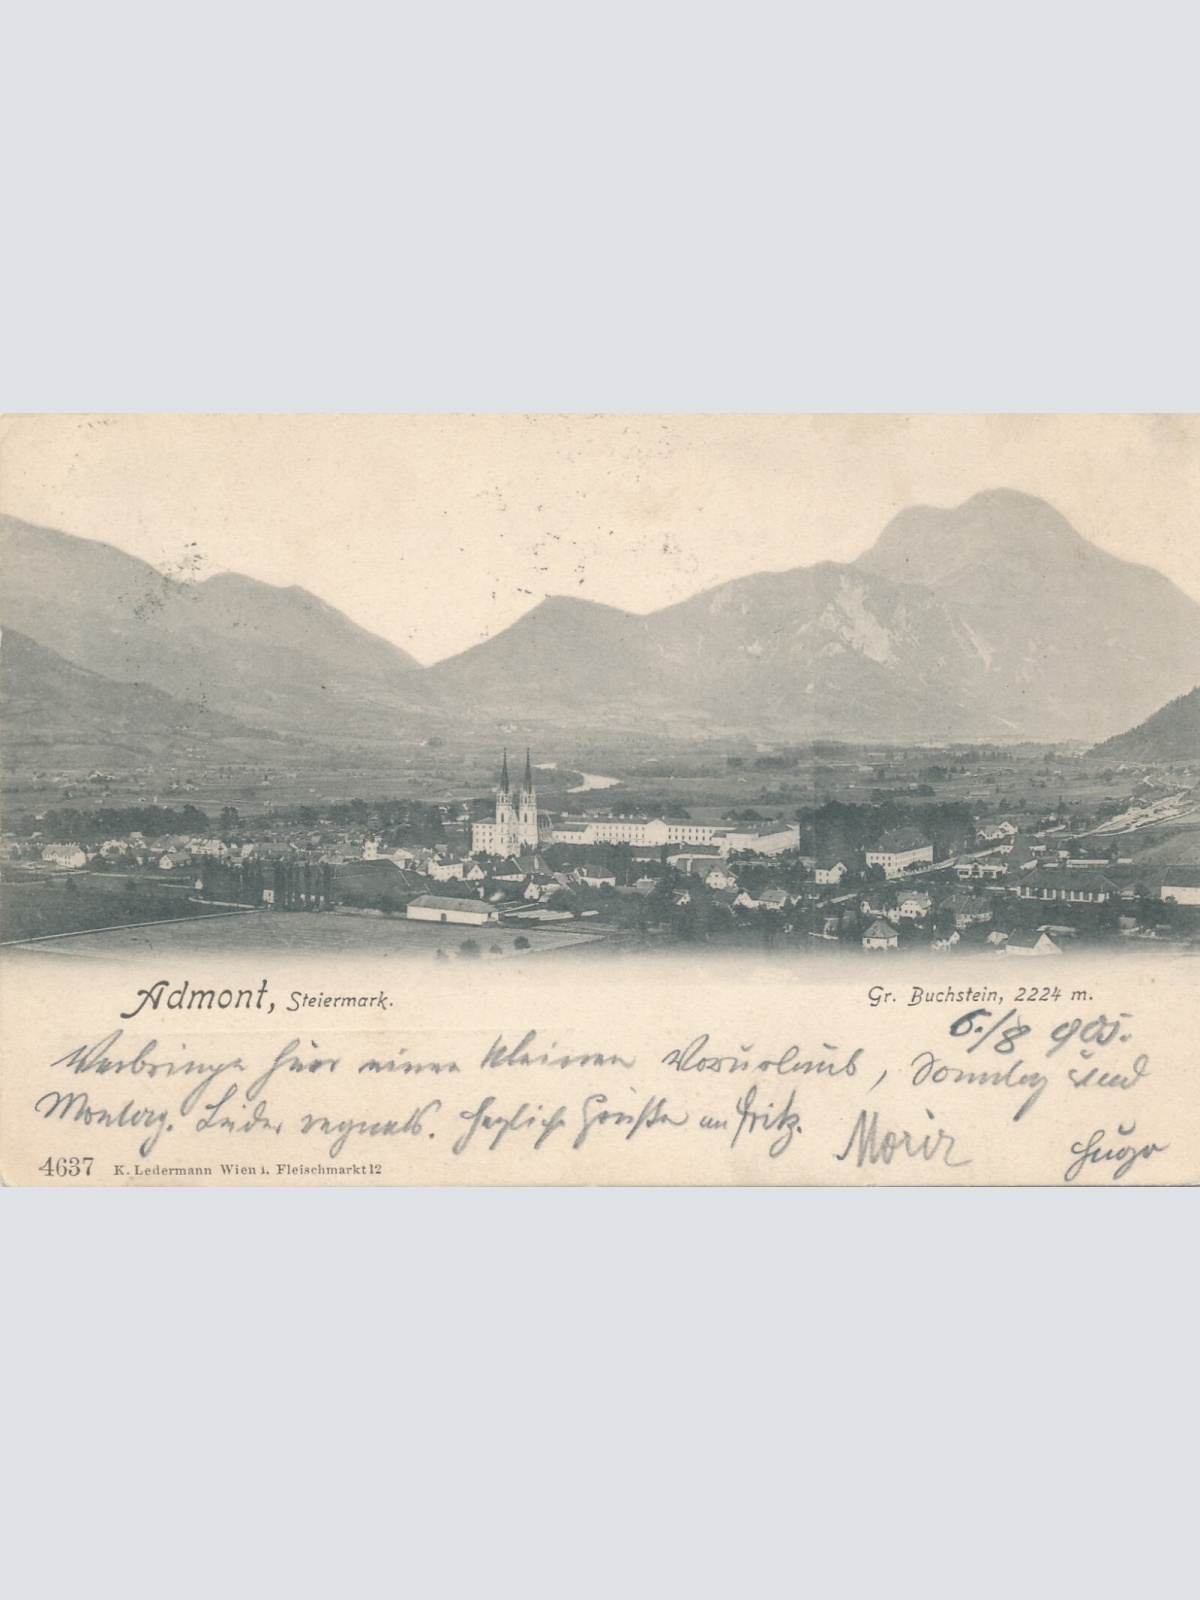 Admont, Steiermark.
Gr. Buchstein, 2224 m.
6./8 905.
Verbringe hier einen kleinen Vorurlaub, Sonntag und
Montag. Leider regnets. Herzliche Grüße an Fritz.
Hugo
4637 K. Ledermann Wien I. Fleischmarkt 12